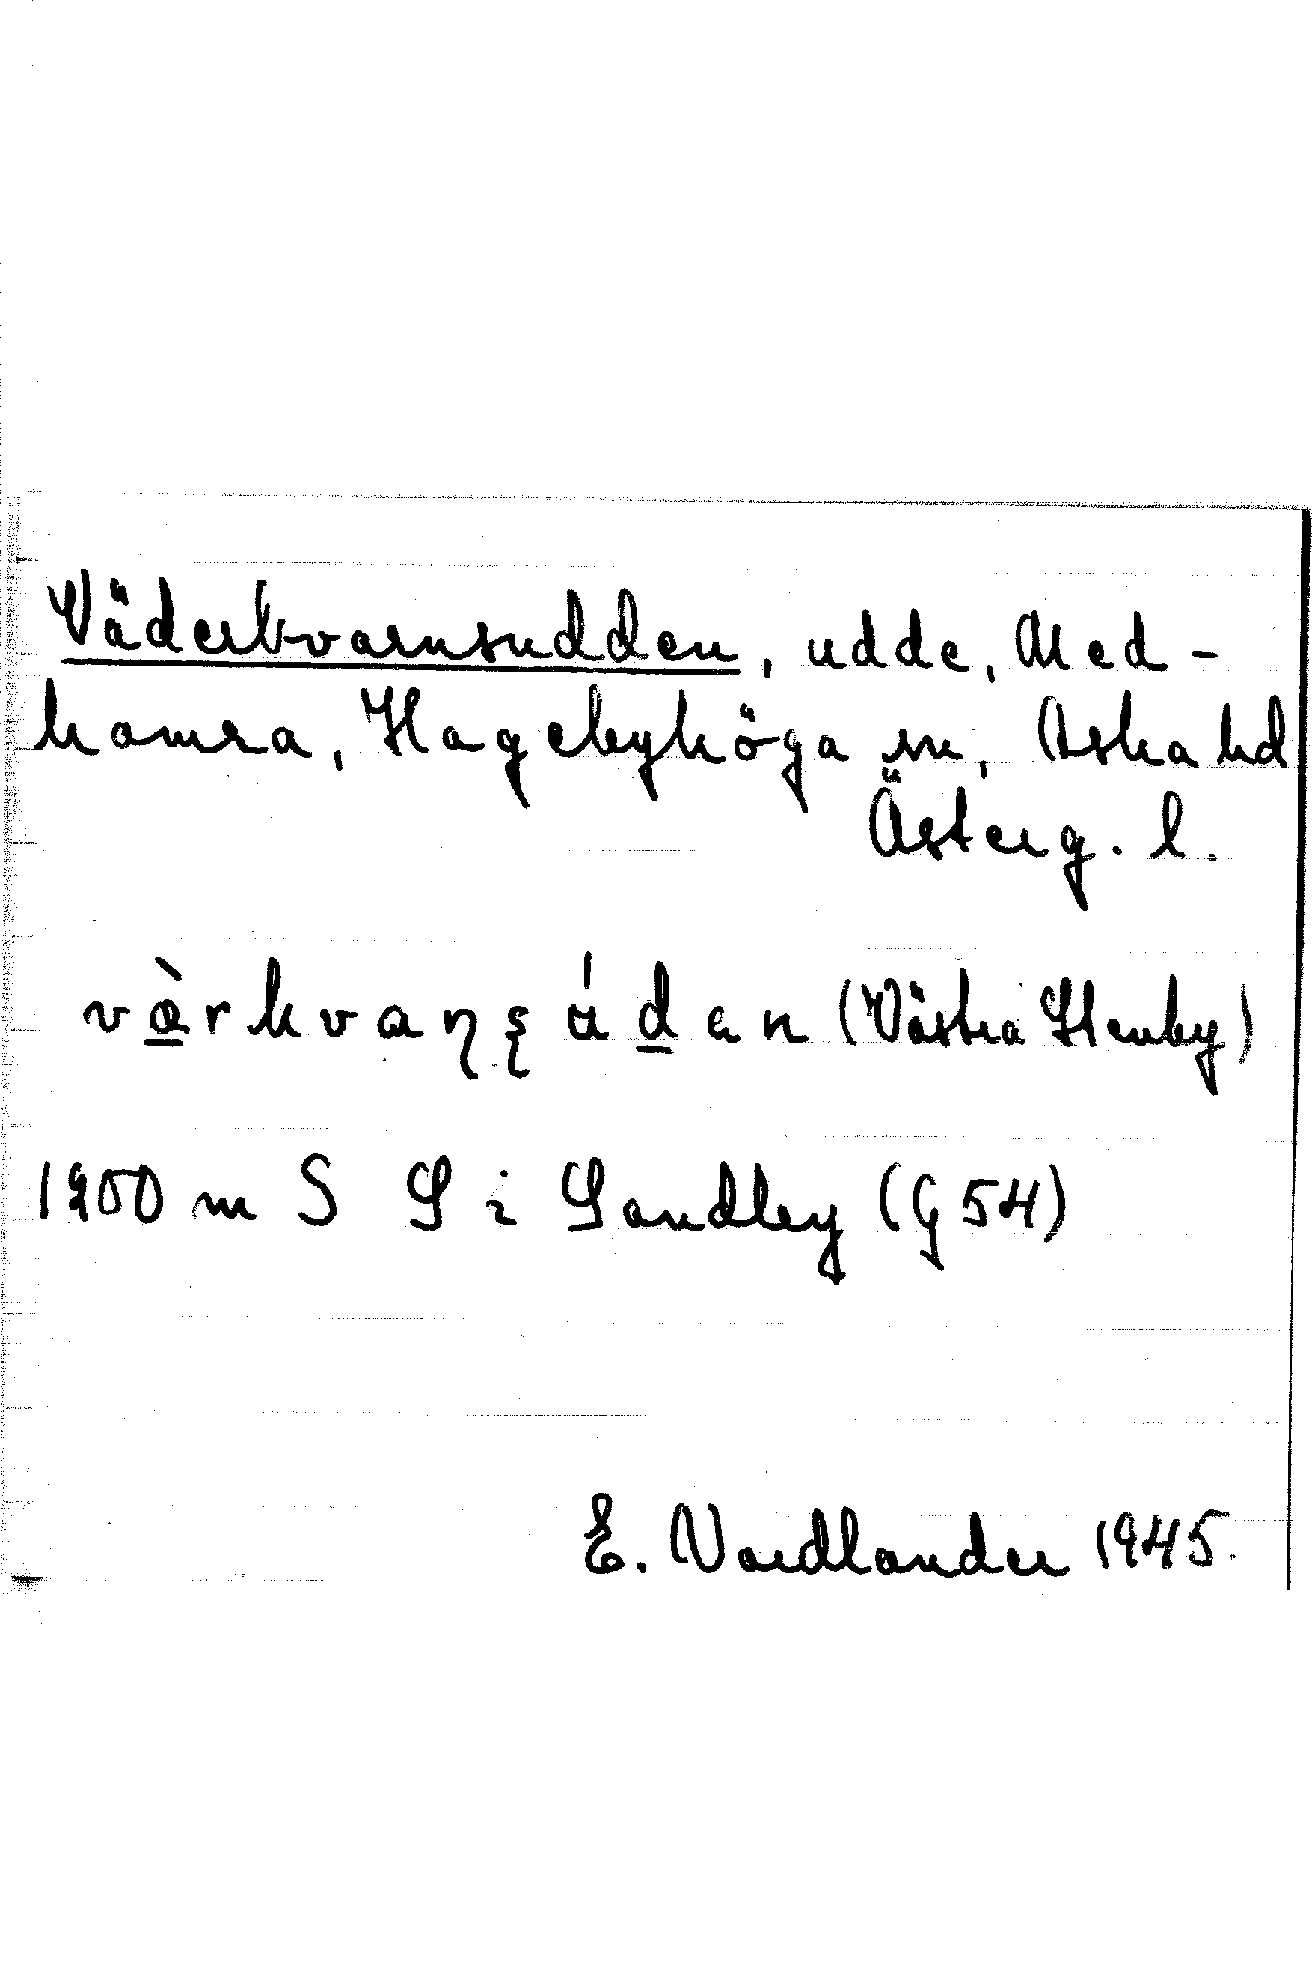 Väderkvarnsudden, udde, Med-
hamra, Hagebyhöga sn, Aska hd
Österg. l.
värkvaɳʂúdan (Västra Stenby)
1900 m S S i Sandby (G 54)
E. Nordlander 1945.